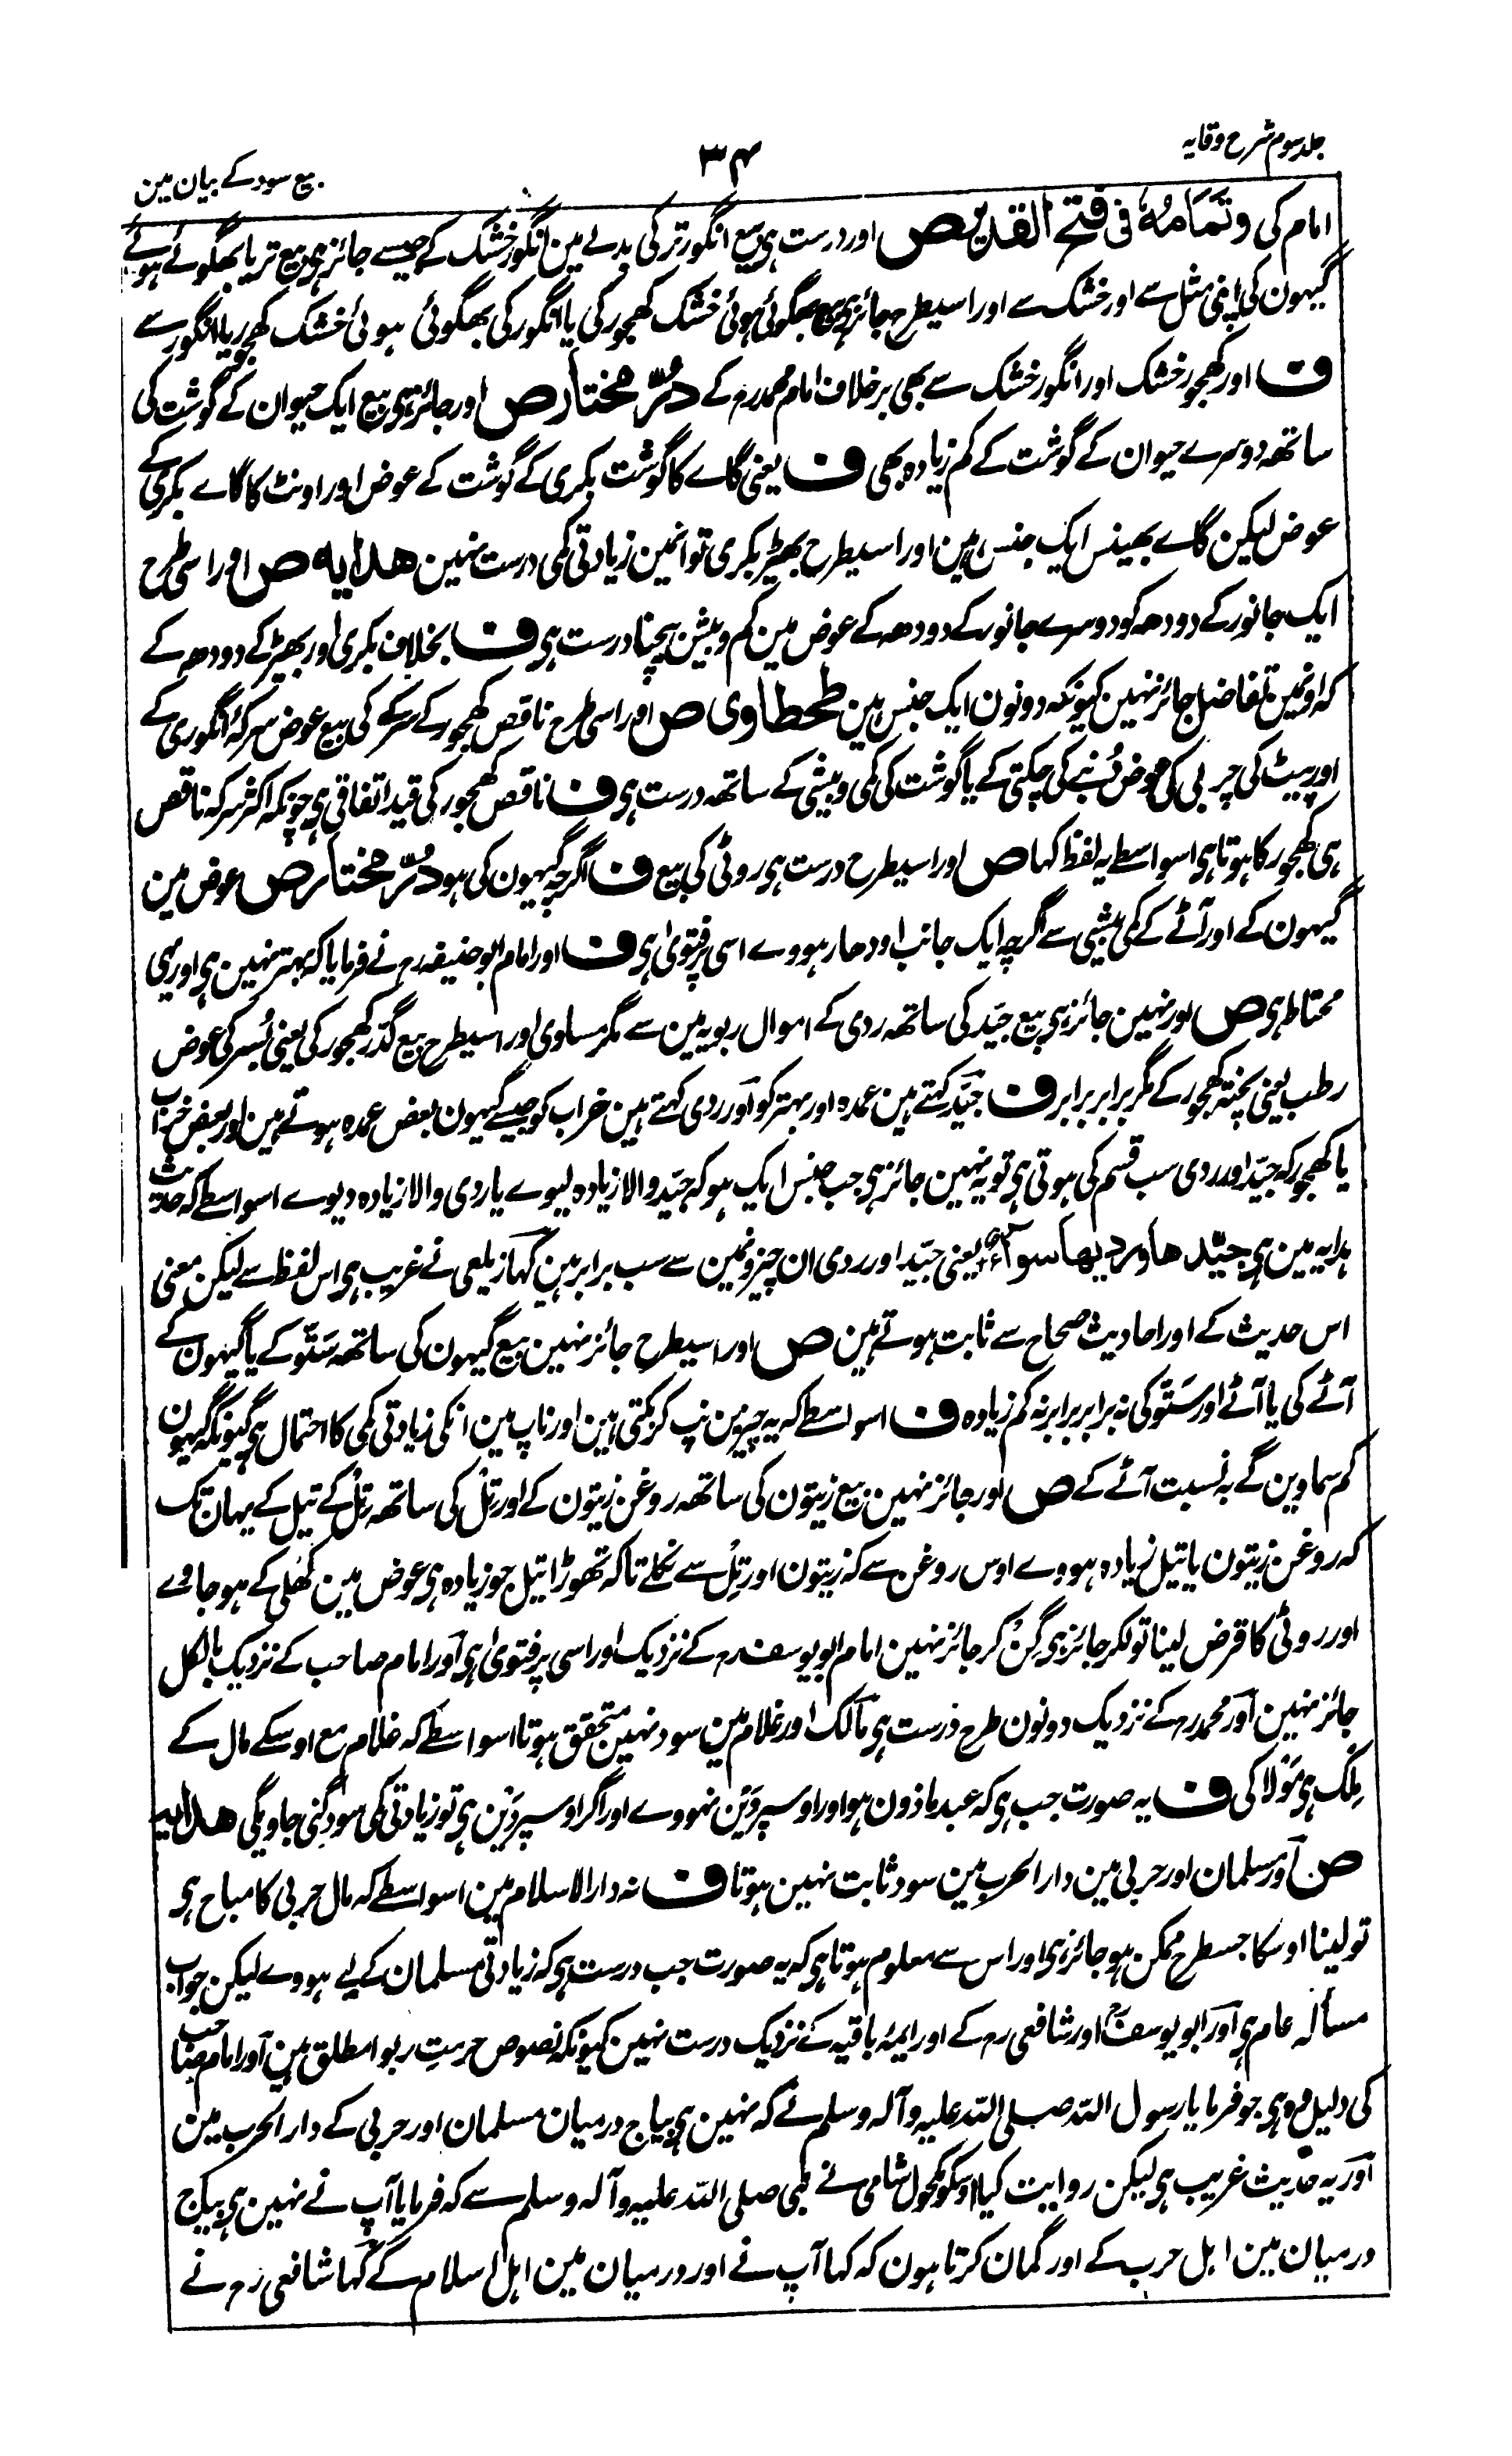 جلد سوم شرح وقایہ
۳۴
بیع سود کے بیان مین
امام کی وتَمَامُہٗ فی فتح القدیر ص اور درست ہی بیع انگور تر کی بدلے مین انگور خشک کے جیسے جائز ہی بیع تر یا بھگوئے ہوئے
گیہون کی اپنی مثل سے اور خشک سے اور اسیطرح جائز ہی بیع بھگوئی ہوئی خشک کھجور کی یا انگور کی بھگوئی ہوئی خشک کھجور یا انگور سے
ف اور کھجور خشک اور انگور خشک سے بھی برخلاف امام محمد رہ کے درّ مختار ص اور جائز ہی بیع ایک حیوان کے گوشت کی
ساتھہ دوسرے حیوان کے گوشت کے کم زیادہ بھی ف یعنی گاے کا گوشت بکری کے گوشت کے عوض اور اونٹ کا گاے بکری کے
عوض لیکن گاے بھینس ایک جنس ہین اور اسیطرح بھیڑ بکری تو انمین زیادتی کمی درست نہین ھدایہ ص اور اسی طرح
ایک جانور کے دودھہ کو دوسرے جانور کے دودھہ کے عوض مین کم و بیش بیچنا درست ہی ف بخلاف بکری اور بھیڑ کے دودھہ کے
کہ اونمین تفاضل جائز نہین کیونکہ دونون ایک جنس ہین طحطاوی ص اور اسی طرح ناقص کھجور کے سرکے کی بیع عوض سرکۂ انگوری کے
اور پیٹ کی چربی کی عوض دُنبے کی چکتی کے یا گوشت کی کمی و بیشی کے ساتھہ درست ہی ف ناقص کھجور کی قید اتفاقی ہی چونکہ اکثر سرکہ ناقص
ہی کھجور کا ہوتا ہی اسواسطے یہ لفظ کہا ص اور اسیطرح درست ہی روٹی کی بیع ف اگرچہ گیہون کی ہو درّ مختار ص عوض مین
گیہون کے اور آٹے کے کمی بیشی سے اگرچہ ایک جانب اودھار ہووے اسی پر فتویٰ ہی ف اور امام ابو حنیفہ رح نے فرمایا کہ بہتر نہین ہی اور یہی
محتاط ہی ص اور نہین جائز ہی بیع جیّد کی ساتھہ ردی کے اموال ربویہ مین سے مگر مساوی اور اسیطرح بیع گدر کھجور کی یعنی بُسر کی عوض
رطب یعنی پختہ کھجور کے مگر برابر برابر ف جیّد کہتے ہین عمدہ اور بہتر کو اور ردی کہتے ہین خراب کو جیسے گیہون بعض عمدہ ہوتے ہین اور بعض خراب
یا کھجور کہ جیّد اور ردی سب قسم کی ہوتی ہی تو یہ نہین جائز ہی جب جنس ایک ہو کہ جیّد والا زیادہ لیوے یا ردی والا زیادہ دیوے اسواسطے کہ حدیث
ہدایہ مین ہی جیّدھا وردیھا سوآء یعنی جیّد اور ردی ان چیزونمین سے سب برابر ہین کہا زیلعی نے غریب ہی اس لفظ سے لیکن معنی
اس حدیث کے اور احادیث صحاح سے ثابت ہوتے ہین ص اور اسیطرح جائز نہین بیع گیہون کی ساتھہ ستّو کے یا گیہون کے
آٹے کی یا آٹے اور ستّو کی نہ برابر برابر نہ کم زیادہ ف اسواسطے کہ یہ چیزین نپ کر بکتی ہین اور ناپ مین انکی زیادتی کمی کا احتمال ہی کیونکہ گیہون
کم سماوین گے بہ نسبت آٹے کے ص اور جائز نہین بیع زیتون کی ساتھہ روغن زیتون کے اور تِل کی ساتھہ تِل کے تیل کے یہان تک
کہ روغن زیتون یا تیل زیادہ ہووے اوس روغن سے کہ زیتون اور تِل سے نکلے تاکہ تھوڑا تیل جو زیادہ ہی عوض مین کھلی کے ہو جاوے
اور روٹی کا قرض لینا تولکر جائز ہی گِن کر جائز نہین امام ابو یوسف رہ کے نزدیک اور اسی پر فتویٰ ہی اور امام صاحب کے نزدیک بالکل
جائز نہین اور محمد رہ کے نزدیک دونون طرح درست ہی مالک اور غلام مین سود نہین متحقق ہوتا اسواسطے کہ غلام مع اوسکے مال کے
مِلک ہی مولا کی ف یہ صورت جب ہی کہ عبد ماذون ہو اور اوسپر دَین نہووے اور اگر اوسپر دَین ہی تو زیادتی کمی سود گنی جاویگی ھدایہ
ص اور مسلمان اور حربی مین دار الحرب مین سود ثابت نہین ہوتا ف نہ دار الاسلام مین اسواسطے کہ مال حربی کا مباح ہی
تو لینا اوسکا جسطرح ممکن ہو جائز ہی اور اس سے معلوم ہوتا ہی کہ یہ صورت جب درست ہی کہ زیادتی مسلمان کے لیے ہووے لیکن جواب
مسألہ عام ہی اور ابو یوسفؒ اور شافعی رہ کے اور ایمۂ باقیہ کے نزدیک درست نہین کیونکہ نصوص حرمتِ ربوا مطلق ہین اور امام صاحب
کی دلیل وہ ہی جو فرمایا رسول اللہ صلی اللہ علیہ وآلہ وسلم نے کہ نہین ہی بیاج درمیان مسلمان اور حربی کے دار الحرب مین
اور یہ حدیث غریب ہی لیکن روایت کیا اوسکو مکحول شامی نے نبی صلی اللہ علیہ وآلہ وسلم سے کہ فرمایا آپ نے نہین ہی بیاج
درمیان مین اہل حرب کے اور گمان کرتا ہون کہ کہا آپ نے اور درمیان مین اہل اسلام کے کہا شافعی رہ نے